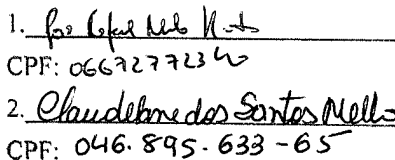 1.
CPF: 06672772340
2. Claudebone dos Santos Mello
CPF: 046.895.633-65